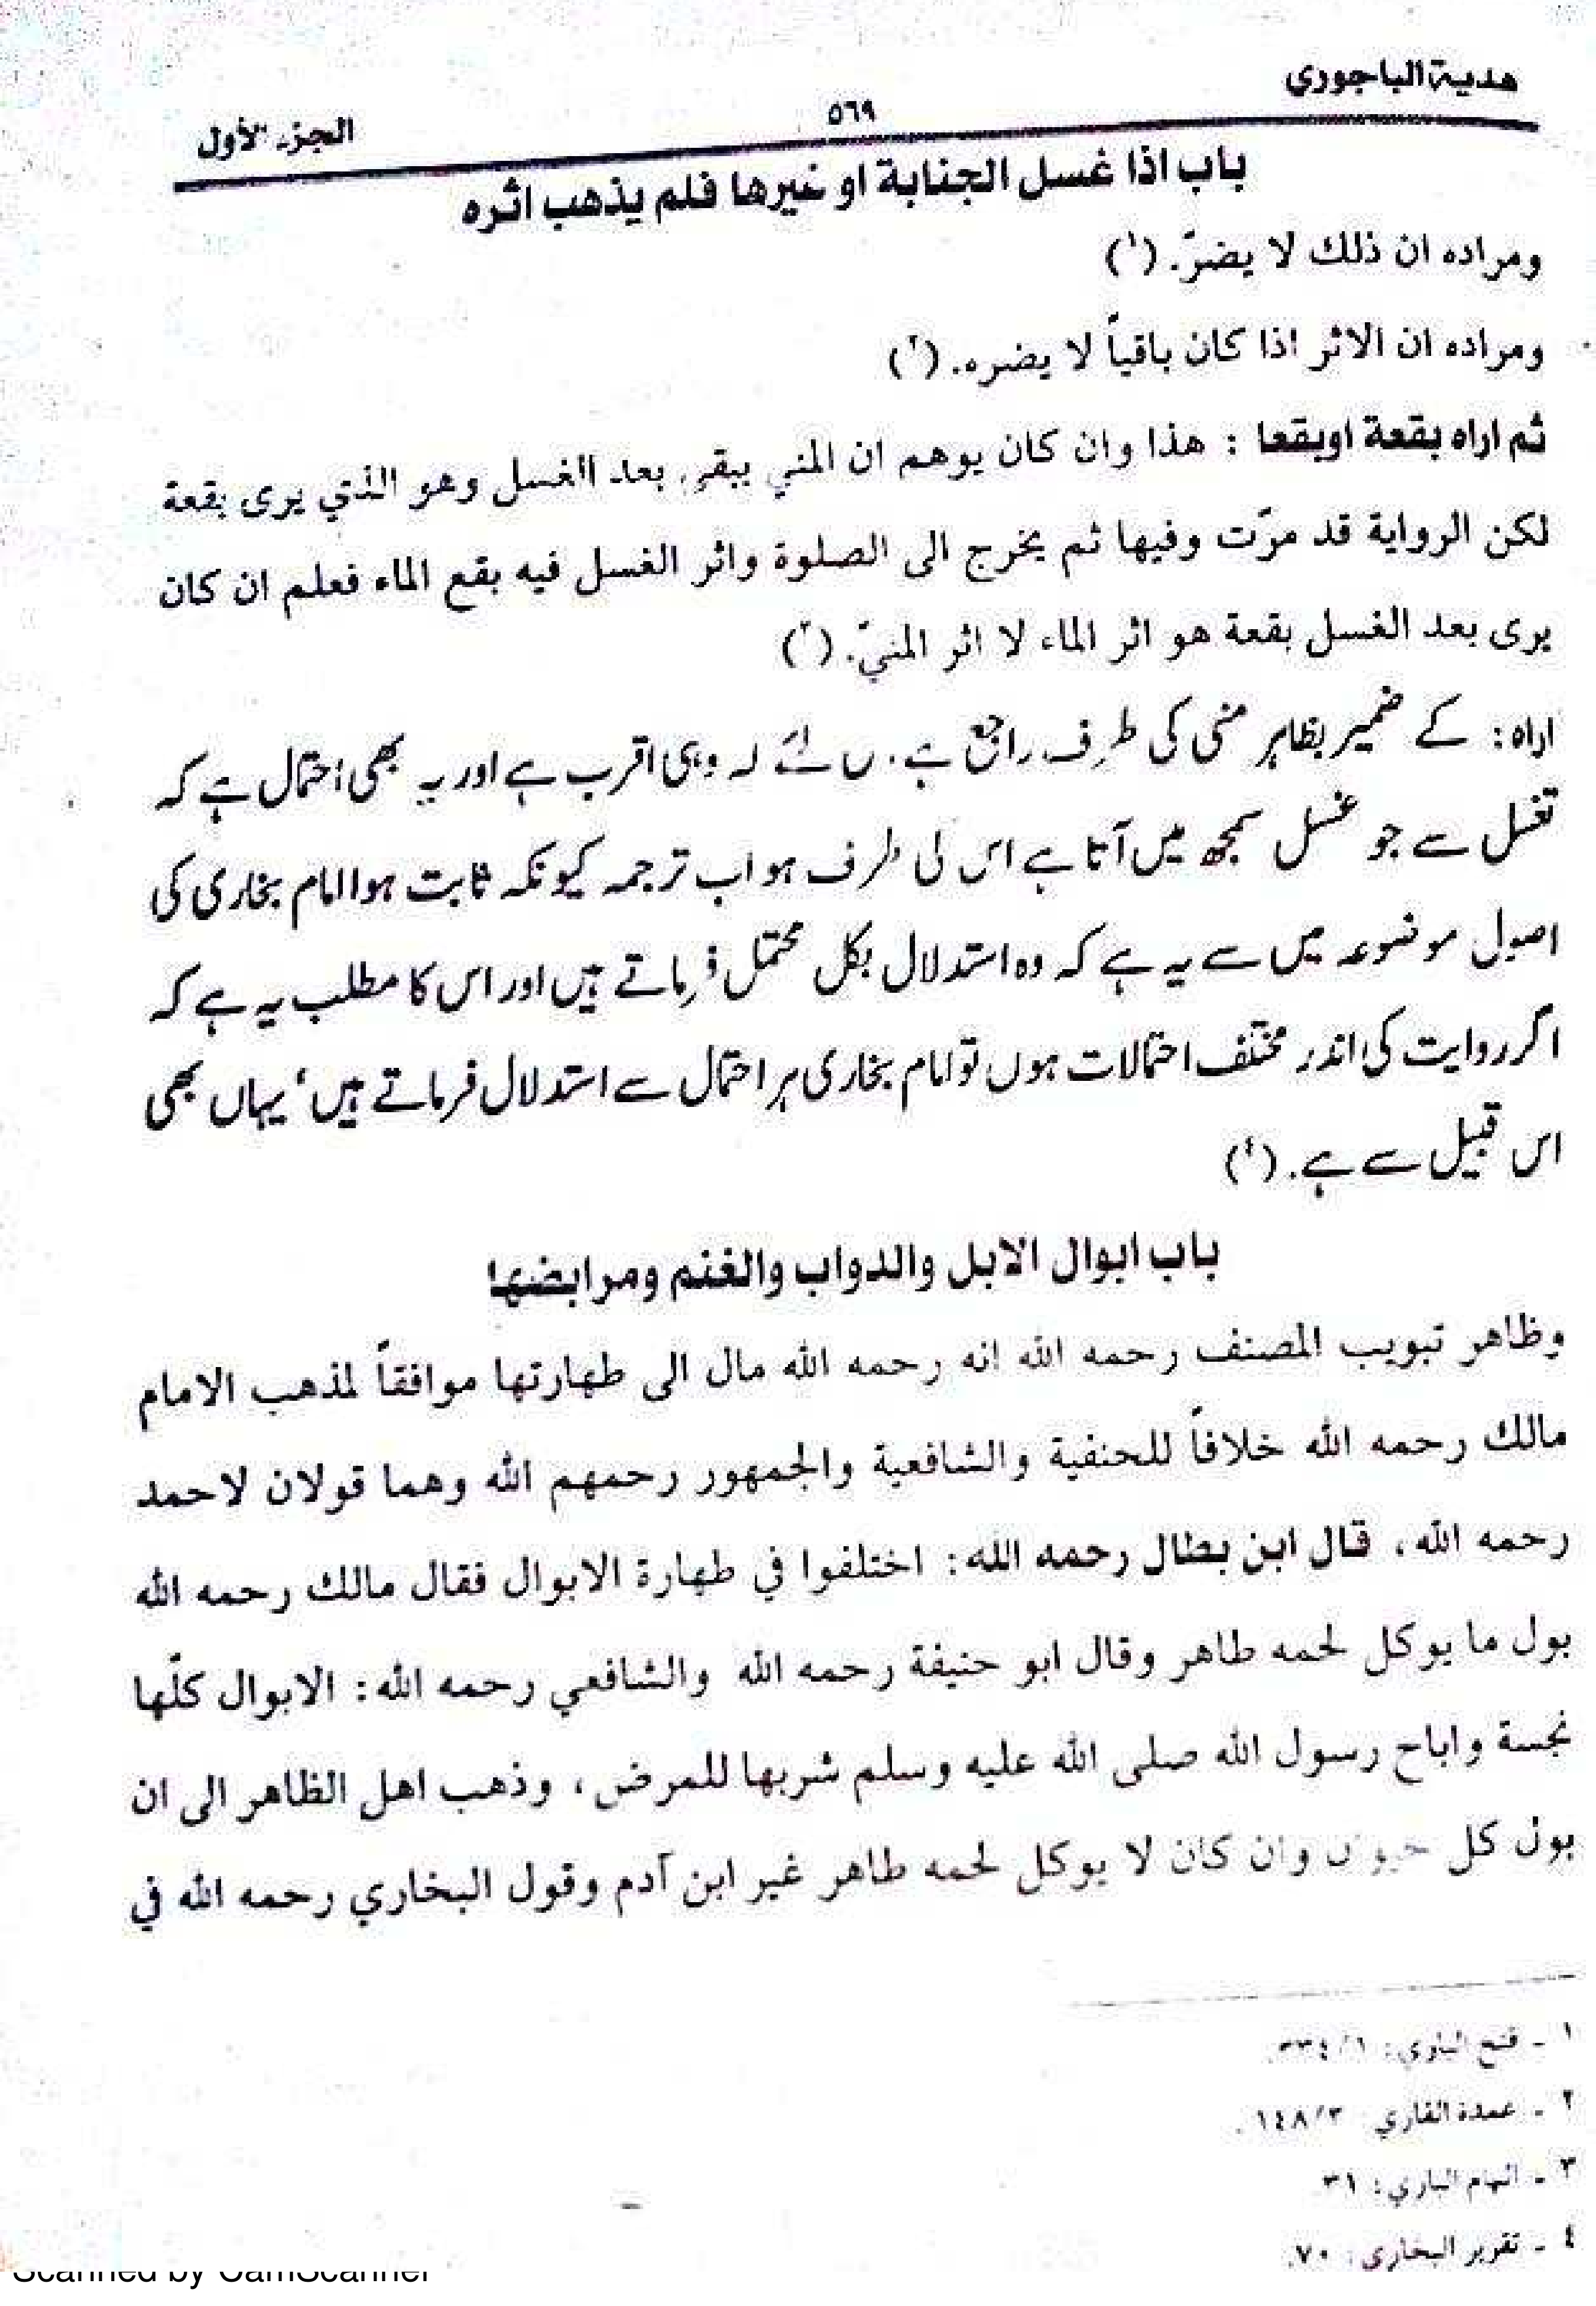 هدية الباجوري
٥٦٩
الجزء الأول
باب اذا غسل الجنابة او غيرها فلم يذهب اثره
ومراده ان ذلك لا يضرّ. (١)
ومراده ان الاثر اذا كان باقياً لا يضره. (٢)
ثم اراه بقعة اوبقعا : هذا وان كان يوهم ان المني يبقى بعد الغسل وهو الذي يرى بقعة
لكن الرواية قد مرّت وفيها ثم يخرج الى الصلوة واثر الغسل فيه بقع الماء فعلم ان كان
يرى بعد الغسل بقعة هو اثر الماء لا اثر المنيّ. (٣)
اراه: کے ضمیر بظاہر منی کی طرف راجع ہے. اس لئے کہ وہی اقرب ہے اور یہ بھی احتمال ہے کہ
تغسل سے جو غسل سمجھ میں آتا ہے اس کی طرف ہو اب ترجمہ کیونکہ ثابت ہوا امام بخاری کی
اصول موضوعہ میں سے یہ ہے کہ وہ استدلال بکل محتمل فرماتے ہیں اور اس کا مطلب یہ ہے کہ
اگر روایت کی اندر مختلف احتمالات ہوں تو امام بخاری ہر احتمال سے استدلال فرماتے ہیں، یہاں بھی
اس قبیل سے ہے. (٤)
باب ابوال الابل والدواب والغنم ومرابضها
وظاهر تبويب المصنف رحمه الله انه رحمه الله مال الى طهارتها موافقاً لمذهب الامام
مالك رحمه الله خلافاً للحنفية والشافعية والجمهور رحمهم الله وهما قولان لاحمد
رحمه الله، قال ابن بطال رحمه الله: اختلفوا في طهارة الابوال فقال مالك رحمه الله
بول ما يوكل لحمه طاهر وقال ابو حنيفة رحمه الله والشافعي رحمه الله: الابوال كلّها
نجسة واباح رسول الله صلى الله عليه وسلم شربها للمرض، وذهب اهل الظاهر الى ان
بول كل حيوان وان كان لا يوكل لحمه طاهر غير ابن آدم وقول البخاري رحمه الله في
١ - فتح الباري: ٣٣٤/١.
٢ - عمدة القاري: ١٤٨/٣.
٣ - الهام الباري: ٣١
٤ - تقرير البخاري: ٧٠.
Scanned by CamScanner